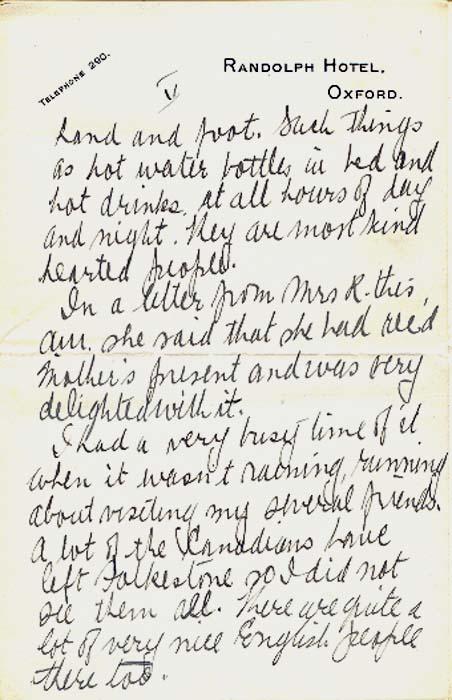 TELEPHONE 290.
V
RANDOLPH HOTEL,
OXFORD.
hand and foot. Such things
as hot water bottles, in bed and
hot drinks, at all hours of day
and night. They are most kind
hearted people.
In a letter from Mrs R. this
am. she said that she had rec'd
Mother's present and was very
delighted with it.
I had a very busy time of it
when it wasn't raining, running
about visiting my several friends.
A lot of the Canadians have
left Folkestone so I did not
see them all. There are quite a
lot of very nice English people
there too.